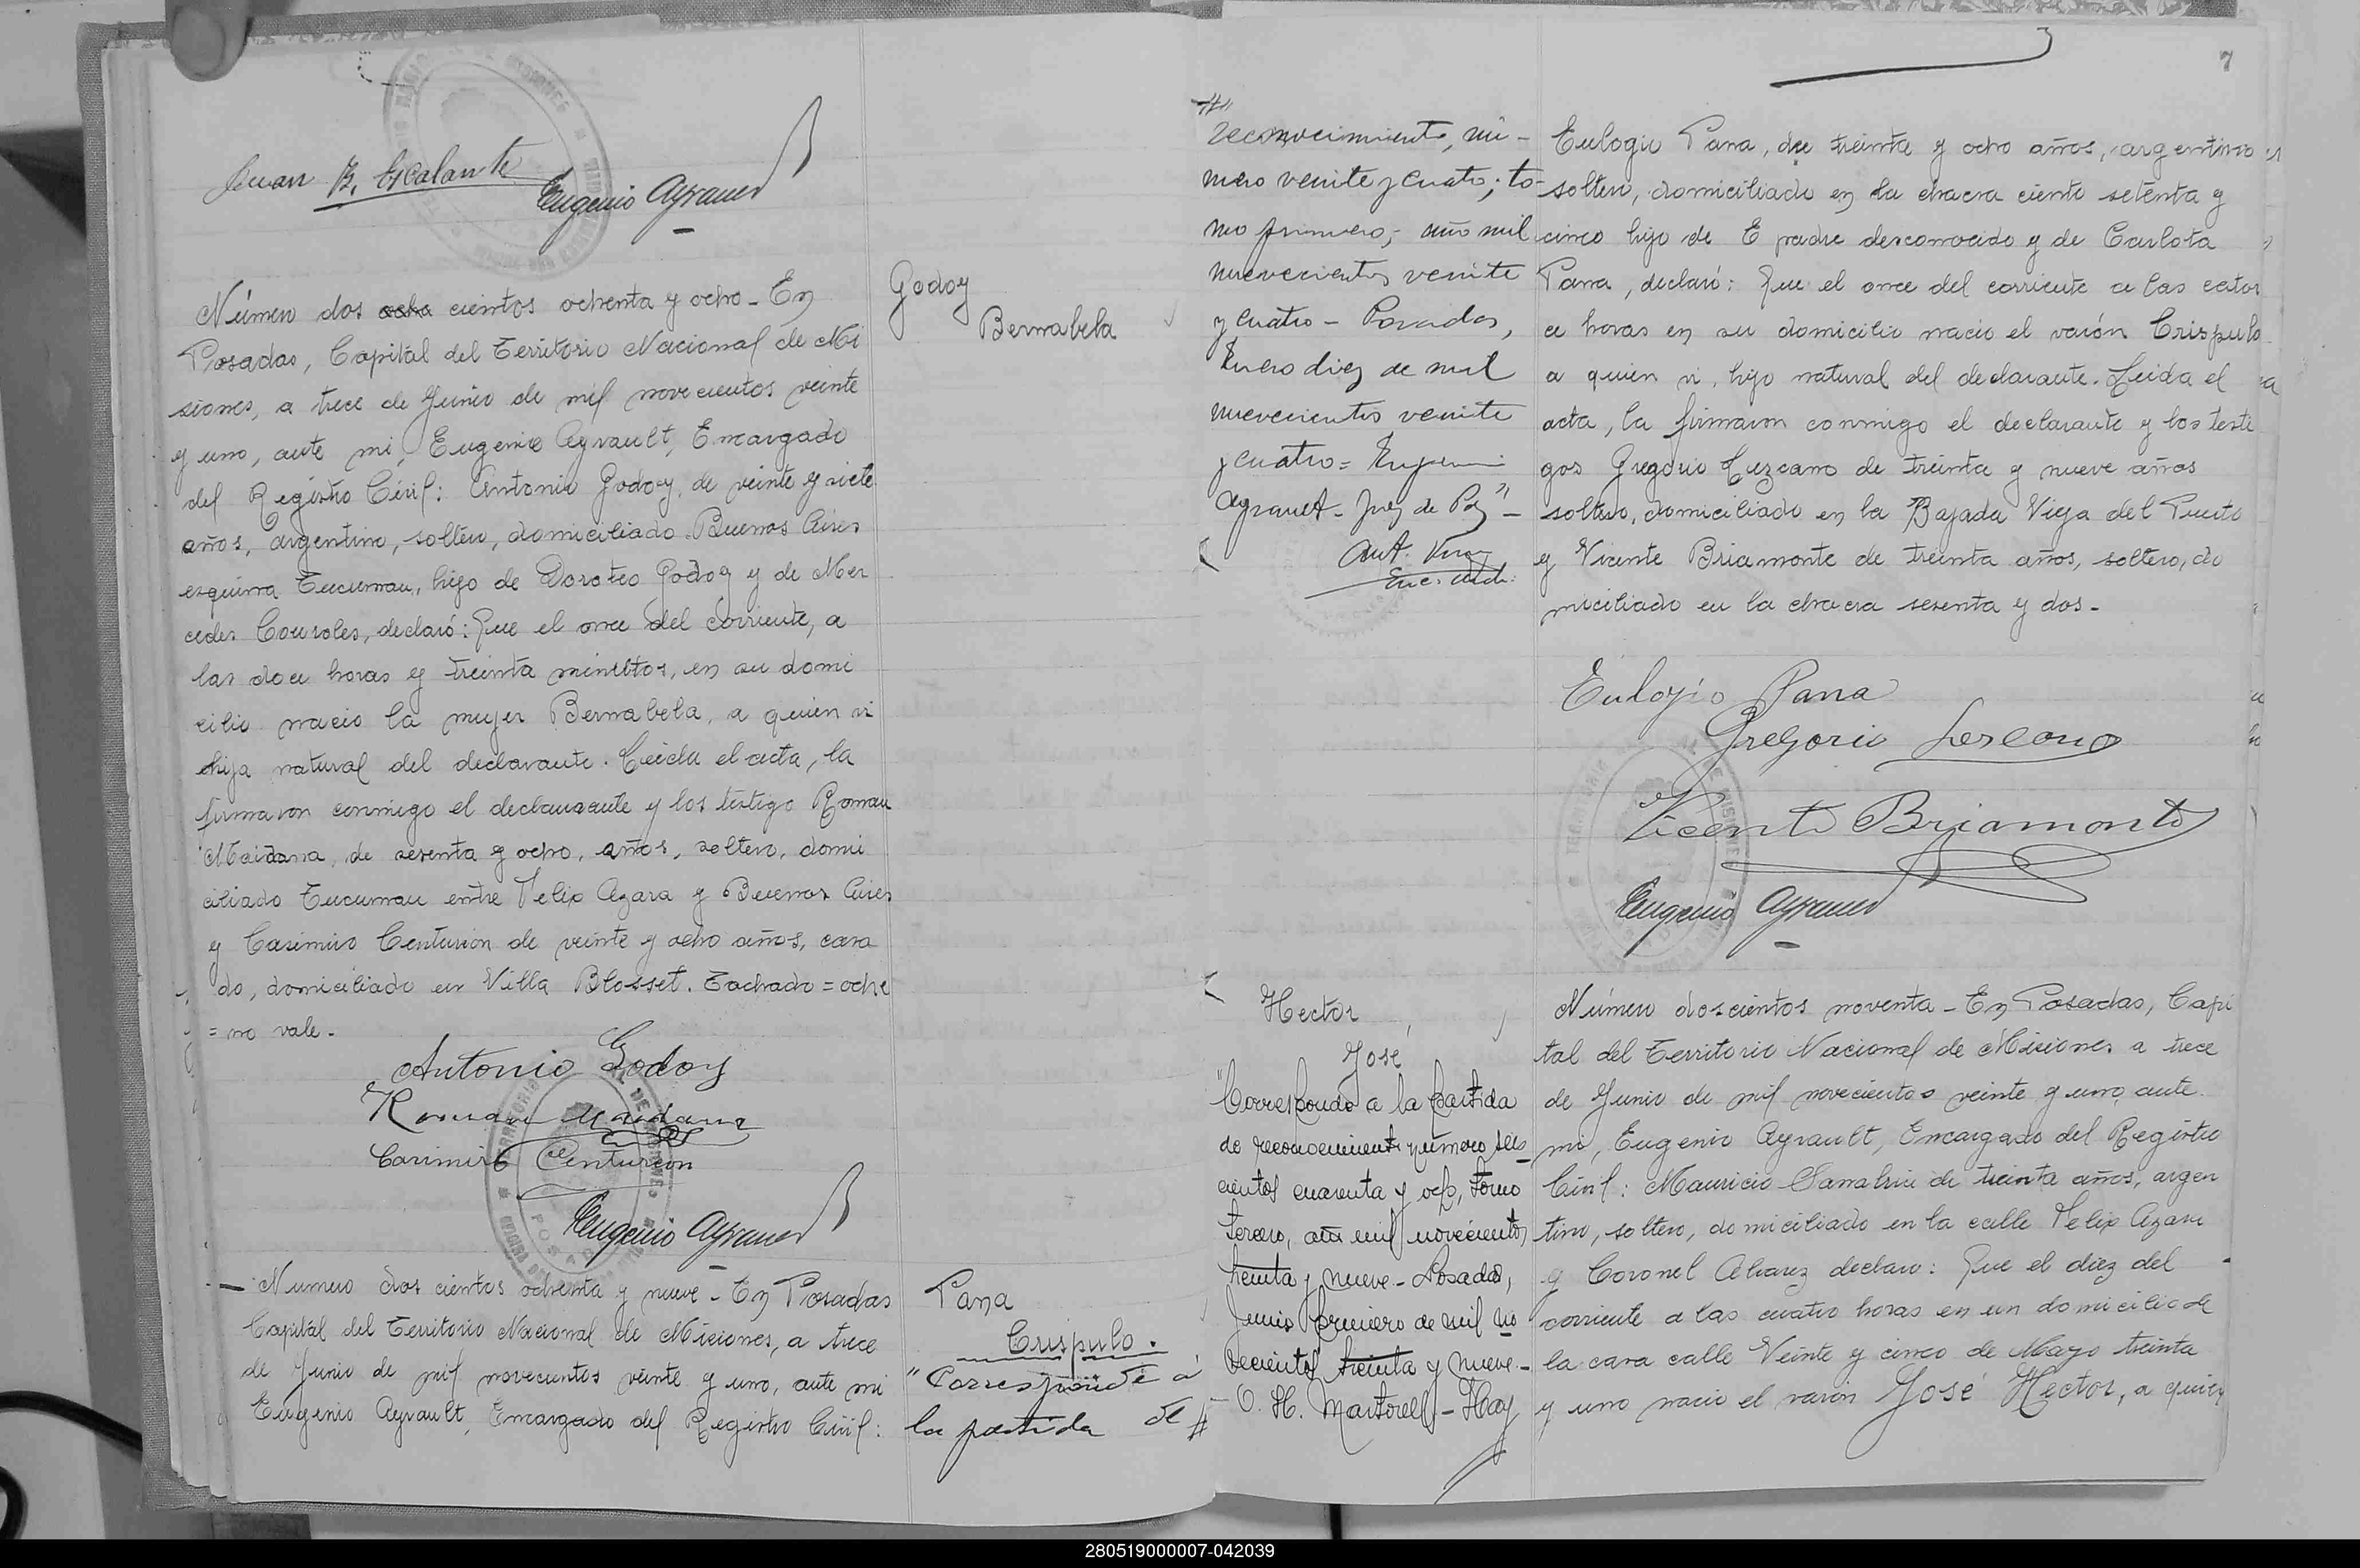 Juan B. Escalante
Eugenio Ayrault
Número dos ocho cientos ochenta y ocho - En
Posadas, Capital del Territorio Nacional de Mi
siones, a trece de Junio de mil novecientos veinte
y uno, ante mi, Eugenio Ayrault, Encargado
del Registro Civil: Antonio Godoy, de veinte y siete
años, argentino, soltero, domiciliado Buenos Aires
esquina Tucuman, hijo de Doroteo Godoy y de Mer
cedes Couroles, declaró: Que el once del corriente, a
las doce horas y treinta minutos, en su domi
cilio nacio la mujer Bernabela, a quien vi
hija natural del declarante. Leida el acta, la
firmaron conmigo el declarante y los testigo Roman
Maidana, de sesenta y ocho, años, soltero, domi
ciliado Tucuman entre Felix Azara y Buenos Aires
y Casimiro Centurion de veinte y ocho años, casa
do, domiciliado en Villa Blosset. Tachado = ocho
= no vale.
Antonio Godoy
Roman Maidana
Casimiro Centurion
Eugenio Ayrault
Godoy
Bernabela
- Numero dos cientos ochenta y nueve - En Posadas
Capital del Territorio Nacional de Misiones, a trece
de Junio de mil novecientos veinte y uno, ante mi
Eugenio Ayrault, Encargado del Registro Civil:
Pana
Crispulo.
"Corresponde á
la partida de #
7
#
reconocimiento, nú-
mero veinte y cuatro; to-
mo primero; año mil
nuevecientos veinte
y cuatro - Posadas,
Enero diez de mil
nuevecientos veinte
y cuatro = Eugenio
Ayrault - Juez de Paz" -
Eulogio Pana, de treinta y ocho años, argentino
soltero, domiciliado en la chacra ciento setenta y
cinco hijo de E padre desconocido y de Carlota
Pana, declaró: Que el once del corriente a las cator
ce horas en su domicilio nacio el varón Crispulo
a quien vi, hijo natural del declarante. Leida el
acta, la firmaron conmigo el declarante y los testi
gos Gregorio Lezcano de treinta y nueve años
soltero, domiciliado en la Bajada Vieja del Puerto
y Vicente Briamonte de treinta años, soltero, do
miciliado en la chacra sesenta y dos.
Eulogio Pana
Gregorio Lescano
Vicente Briamonte
Eugenio Ayrault
Hector
José
"Corresponde a la partida
de reconocimiento número seis
cientos cuarenta y ocho, tomo
tercero, año mil novecientos
treinta y nueve - Posadas,
Junio primero de mil no
vecientos treinta y nueve -
O. H. Martorell - Hay
Número doscientos noventa - En Posadas, Capi
tal del Territorio Nacional de Misiones a trece
de Junio de mil novecientos veinte y uno, ante
mi, Eugenio Ayrault, Encargado del Registro
Civil: Mauricio Sanabria de treinta años, argen
tino, soltero, domiciliado en la calle Felix Azara
y Coronel Alvarez declaro: Que el diez del
corriente a las cuatro horas en un domicilio de
la casa calle Veinte y cinco de Mayo treinta
y uno nacio el varón José Hector, a quien
280519000007-042039